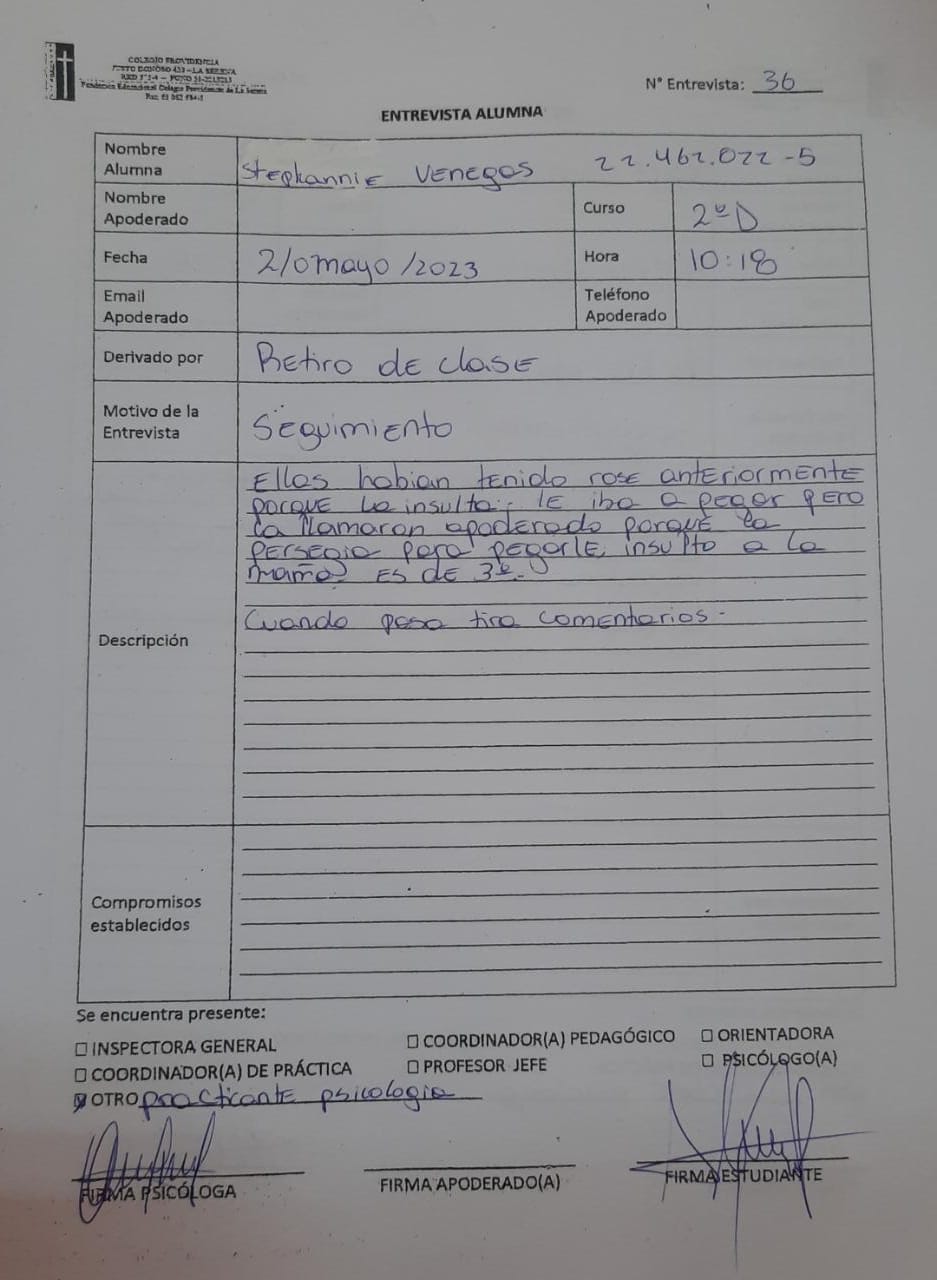 COLEGIO PROVIDENCIA
JUSTO DONOSO 420 – LA SERENA
Fundación Educacional Colegio Providencia de La Serena
N° Entrevista: 36
ENTREVISTA ALUMNA
Nombre Alumna Stephannie Venegas 22.462.022-5
Nombre Apoderado
Curso 2ºD
Fecha 2/0mayo/2023
Hora 10:18
Email Apoderado
Teléfono Apoderado
Derivado por Retiro de clase
Motivo de la Entrevista Seguimiento
Descripción
Ellas habian tenido rose anteriormente
porque la insulta. le iba a pegar pero
la llamaron apoderado porque la
persegia para pegarle, insulto a la
mamá. Es de 3º.
Cuando pasa tira comentarios.
Compromisos establecidos
Se encuentra presente:
☐ INSPECTORA GENERAL ☐ COORDINADOR(A) PEDAGÓGICO ☐ ORIENTADORA
☐ COORDINADOR(A) DE PRÁCTICA ☐ PROFESOR JEFE ☐ PSICÓLOGO(A)
☑ OTRO practicante psicologia
FIRMA PSICÓLOGA FIRMA APODERADO(A) FIRMA ESTUDIANTE